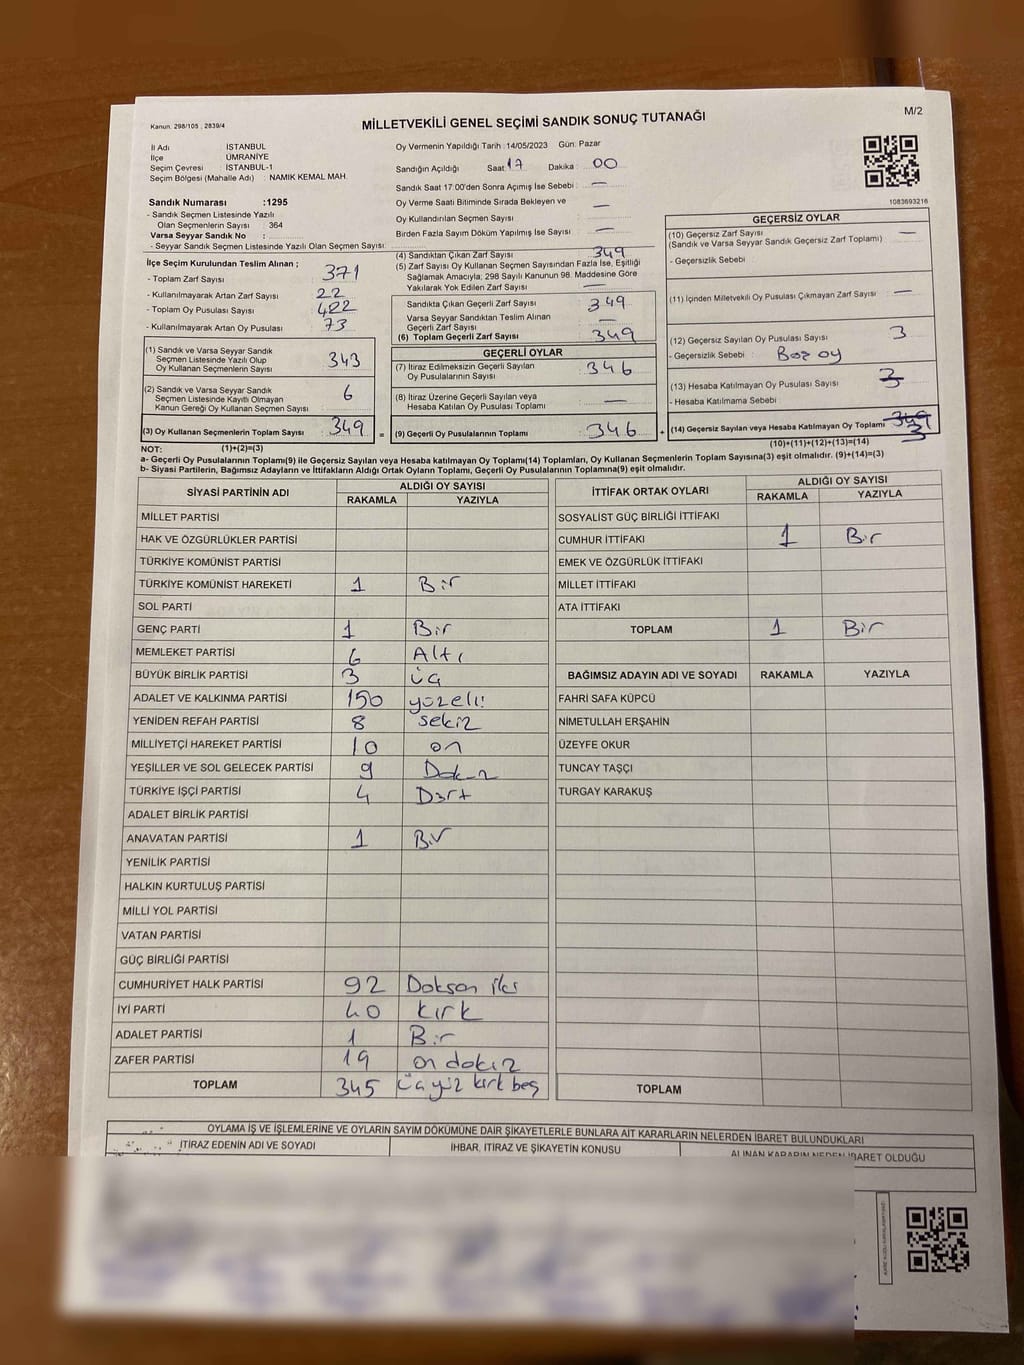 M/2
Kanun. 298/105 , 2839/4
MİLLETVEKİLİ GENEL SEÇİMİ SANDIK SONUÇ TUTANAĞI
İl Adı İSTANBUL
İlçe ÜMRANİYE
Seçim Çevresi : İSTANBUL-1
Seçim Bölgesi (Mahalle Adı) : NAMIK KEMAL MAH.
Oy Vermenin Yapıldığı Tarih :14/05/2023 Gün. Pazar
Sandığın Açıldığı Saat 17 Dakika : 00
Sandık Saat 17.00'den Sonra Açımış İse Sebebi : —
Oy Verme Saati Bitiminde Sırada Bekleyen ve
Oy Kullandırılan Seçmen Sayısı —
Birden Fazla Sayım Döküm Yapılmış İse Sayısı —
1083693216
Sandık Numarası :1295
- Sandık Seçmen Listesinde Yazılı
Olan Seçmenlerin Sayısı : 364
Varsa Seyyar Sandık No :
- Seyyar Sandık Seçmen Listesinde Yazılı Olan Seçmen Sayısı:
İlçe Seçim Kurulundan Teslim Alınan ;
- Toplam Zarf Sayısı 371
- Kullanılmayarak Artan Zarf Sayısı : 22
- Toplam Oy Pusulası Sayısı : 422
- Kullanılmayarak Artan Oy Pusulası : 73
(1) Sandık ve Varsa Seyyar Sandık
Seçmen Listesinde Yazılı Olup
Oy Kullanan Seçmenlerin Sayısı : 343
(2) Sandık ve Varsa Seyyar Sandık
Seçmen Listesinde Kayıtlı Olmayan
Kanun Gereği Oy Kullanan Seçmen Sayısı : 6
(3) Oy Kullanan Seçmenlerin Toplam Sayısı : 349 =
(4) Sandıktan Çıkan Zarf Sayısı : 349
(5) Zarf Sayısı Oy Kullanan Seçmen Sayısından Fazla İse, Eşitliği
Sağlamak Amacıyla; 298 Sayılı Kanunun 98. Maddesine Göre
Yakılarak Yok Edilen Zarf Sayısı : —
Sandıkta Çıkan Geçerli Zarf Sayısı : 349
Varsa Seyyar Sandıktan Teslim Alınan
Geçerli Zarf Sayısı : —
(6) Toplam Geçerli Zarf Sayısı : 349
GEÇERLİ OYLAR
(7) İtiraz Edilmeksizin Geçerli Sayılan
Oy Pusulalarının Sayısı : 346
(8) İtiraz Üzerine Geçerli Sayılan veya
Hesaba Katılan Oy Pusulası Toplamı : —
(9) Geçerli Oy Pusulalarının Toplamı : 346 +
GEÇERSİZ OYLAR
(10) Geçersiz Zarf Sayısı —
(Sandık ve Varsa Seyyar Sandık Geçersiz Zarf Toplamı)
- Geçersizlik Sebebi :
(11) İçinden Milletvekili Oy Pusulası Çıkmayan Zarf Sayısı : —
(12) Geçersiz Sayılan Oy Pusulası Sayısı : 3
- Geçersizlik Sebebi : Boz oy
(13) Hesaba Katılmayan Oy Pusulası Sayısı : 3
- Hesaba Katılmama Sebebi :
(14) Geçersiz Sayılan veya Hesaba Katılmayan Oy Toplamı : 349 3
(10)+(11)+(12)+(13)=(14)
NOT: (1)+(2)=(3)
a- Geçerli Oy Pusulalarının Toplamı(9) ile Geçersiz Sayılan veya Hesaba katılmayan Oy Toplamı(14) Toplamları, Oy Kullanan Seçmenlerin Toplam Sayısına(3) eşit olmalıdır. (9)+(14)=(3)
b- Siyasi Partilerin, Bağımsız Adayların ve İttifakların Aldığı Ortak Oyların Toplamı, Geçerli Oy Pusulalarının Toplamına(9) eşit olmalıdır.
SİYASİ PARTİNİN ADI ALDIĞI OY SAYISI
RAKAMLA YAZIYLA
MİLLET PARTİSİ
HAK VE ÖZGÜRLÜKLER PARTİSİ
TÜRKİYE KOMÜNİST PARTİSİ
TÜRKİYE KOMÜNİST HAREKETİ 1 Bir
SOL PARTİ
GENÇ PARTİ 1 Bir
MEMLEKET PARTİSİ 6 Altı
BÜYÜK BİRLİK PARTİSİ 3 üç
ADALET VE KALKINMA PARTİSİ 150 yüzelli
YENİDEN REFAH PARTİSİ 8 sekiz
MİLLİYETÇİ HAREKET PARTİSİ 10 on
YEŞİLLER VE SOL GELECEK PARTİSİ 9 Dokuz
TÜRKİYE İŞÇİ PARTİSİ 4 Dört
ADALET BİRLİK PARTİSİ
ANAVATAN PARTİSİ 1 Bir
YENİLİK PARTİSİ
HALKIN KURTULUŞ PARTİSİ
MİLLİ YOL PARTİSİ
VATAN PARTİSİ
GÜÇ BİRLİĞİ PARTİSİ
CUMHURİYET HALK PARTİSİ 92 Doksan iki
İYİ PARTİ 40 kırk
ADALET PARTİSİ 1 Bir
ZAFER PARTİSİ 19 on dokuz
TOPLAM 345 üçyüz kırk beş
İTTİFAK ORTAK OYLARI ALDIĞI OY SAYISI
RAKAMLA YAZIYLA
SOSYALİST GÜÇ BİRLİĞİ İTTİFAKI
CUMHUR İTTİFAKI 1 Bir
EMEK VE ÖZGÜRLÜK İTTİFAKI
MİLLET İTTİFAKI
ATA İTTİFAKI
TOPLAM 1 Bir
BAĞIMSIZ ADAYIN ADI VE SOYADI RAKAMLA YAZIYLA
FAHRİ SAFA KÜPCÜ
NİMETULLAH ERŞAHİN
ÜZEYFE OKUR
TUNCAY TAŞÇI
TURGAY KARAKUŞ
TOPLAM
OYLAMA İŞ VE İŞLEMLERİNE VE OYLARIN SAYIM DÖKÜMÜNE DAİR ŞİKAYETLERLE BUNLARA AİT KARARLARIN NELERDEN İBARET BULUNDUKLARI
İTİRAZ EDENİN ADI VE SOYADI İHBAR, İTİRAZ VE ŞİKAYETİN KONUSU ALINAN KARARIN NEDEN İBARET OLDUĞU